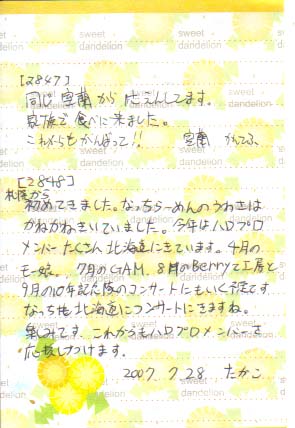 [2847]
同じ室蘭から応えんしてます。
家族で食べに来ました。
これからもがんばって!!　室蘭
[2848]
札幌から
初めてきました。なっちらーめんのうわさは
かねがねきいていました。今年はハロプロ
メンバーたくさん北海道にきています。4月の
モー娘。、7月のGAM、8月のBerryz工房と
9月の10年記念隊のコンサートにもいく予定です
なっちも北海道にコンサートにきますね。
楽しみです。これからもハロプロメンバーを
応援しつづけます。
2007. 7. 28. たかこ
sweet dandelion